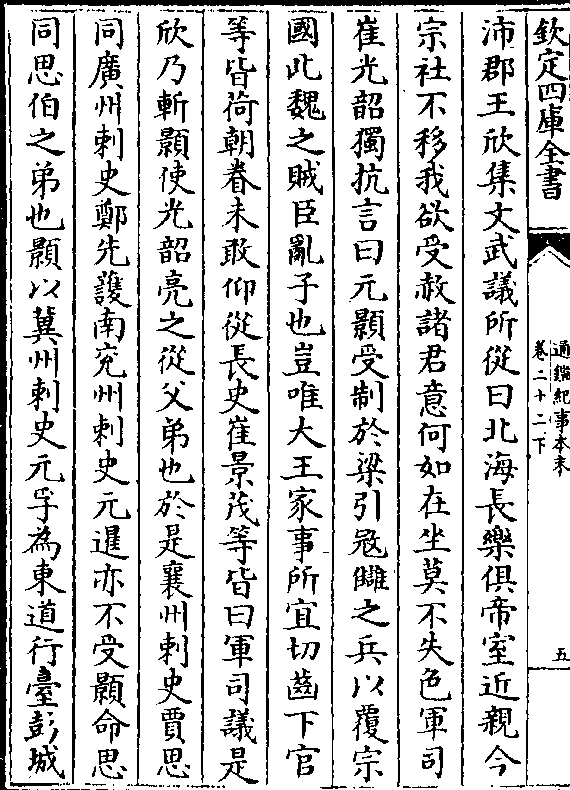 欽定四庫全書
通鑑紀事本末
卷二十二下
五
沛郡王欣集文武議所從曰北海長樂俱帝室近親今
宗社不移我欲受赦諸君意何如在坐莫不失色軍司
崔光韶獨抗言曰元顥受制於梁引寇讎之兵以覆宗
國此魏之賊臣亂子也豈唯大王家事所宜切齒下官
等皆荷朝眷未敢仰從長史崔景茂等皆曰軍司議是
欣乃斬顥使光韶亮之從父弟也於是襄州刺史賈思
同廣州刺史鄭先護南兖州刺史元暹亦不受顥命思
同思伯之弟也顥以冀州刺史元孚為東道行臺彭城